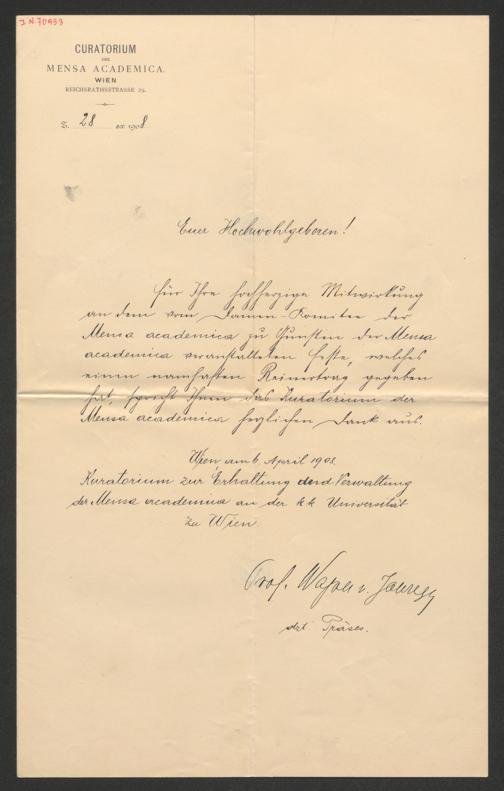 I.N. 70953
CURATORIUM
DER
MENSA ACADEMICA.
WIEN
REICHSRATHSSTRASSE 25.
Z. 28 ex 1908
Euer Hochwohlgeboren!
Für Ihre hochherzige Mitwirkung
an dem vom Damen-Komitee der
Mensa academica zu Gunsten der Mensa
academica veranstalteten Feste, welches
einen namhaften Reinertrag gegeben
hat, spricht Ihnen das Kuratorium der
Mensa academica herzlichen Dank aus.
Wien am 6. April 1908.
Kuratorium zur Erhaltung und Verwaltung
der Mensa academica an der k k Universität
zu Wien.
Prof. Wagner v. Jauregg
dzt. Präses.